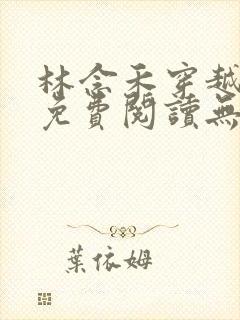 林念禾穿越
免費閱讀無
葉依姆